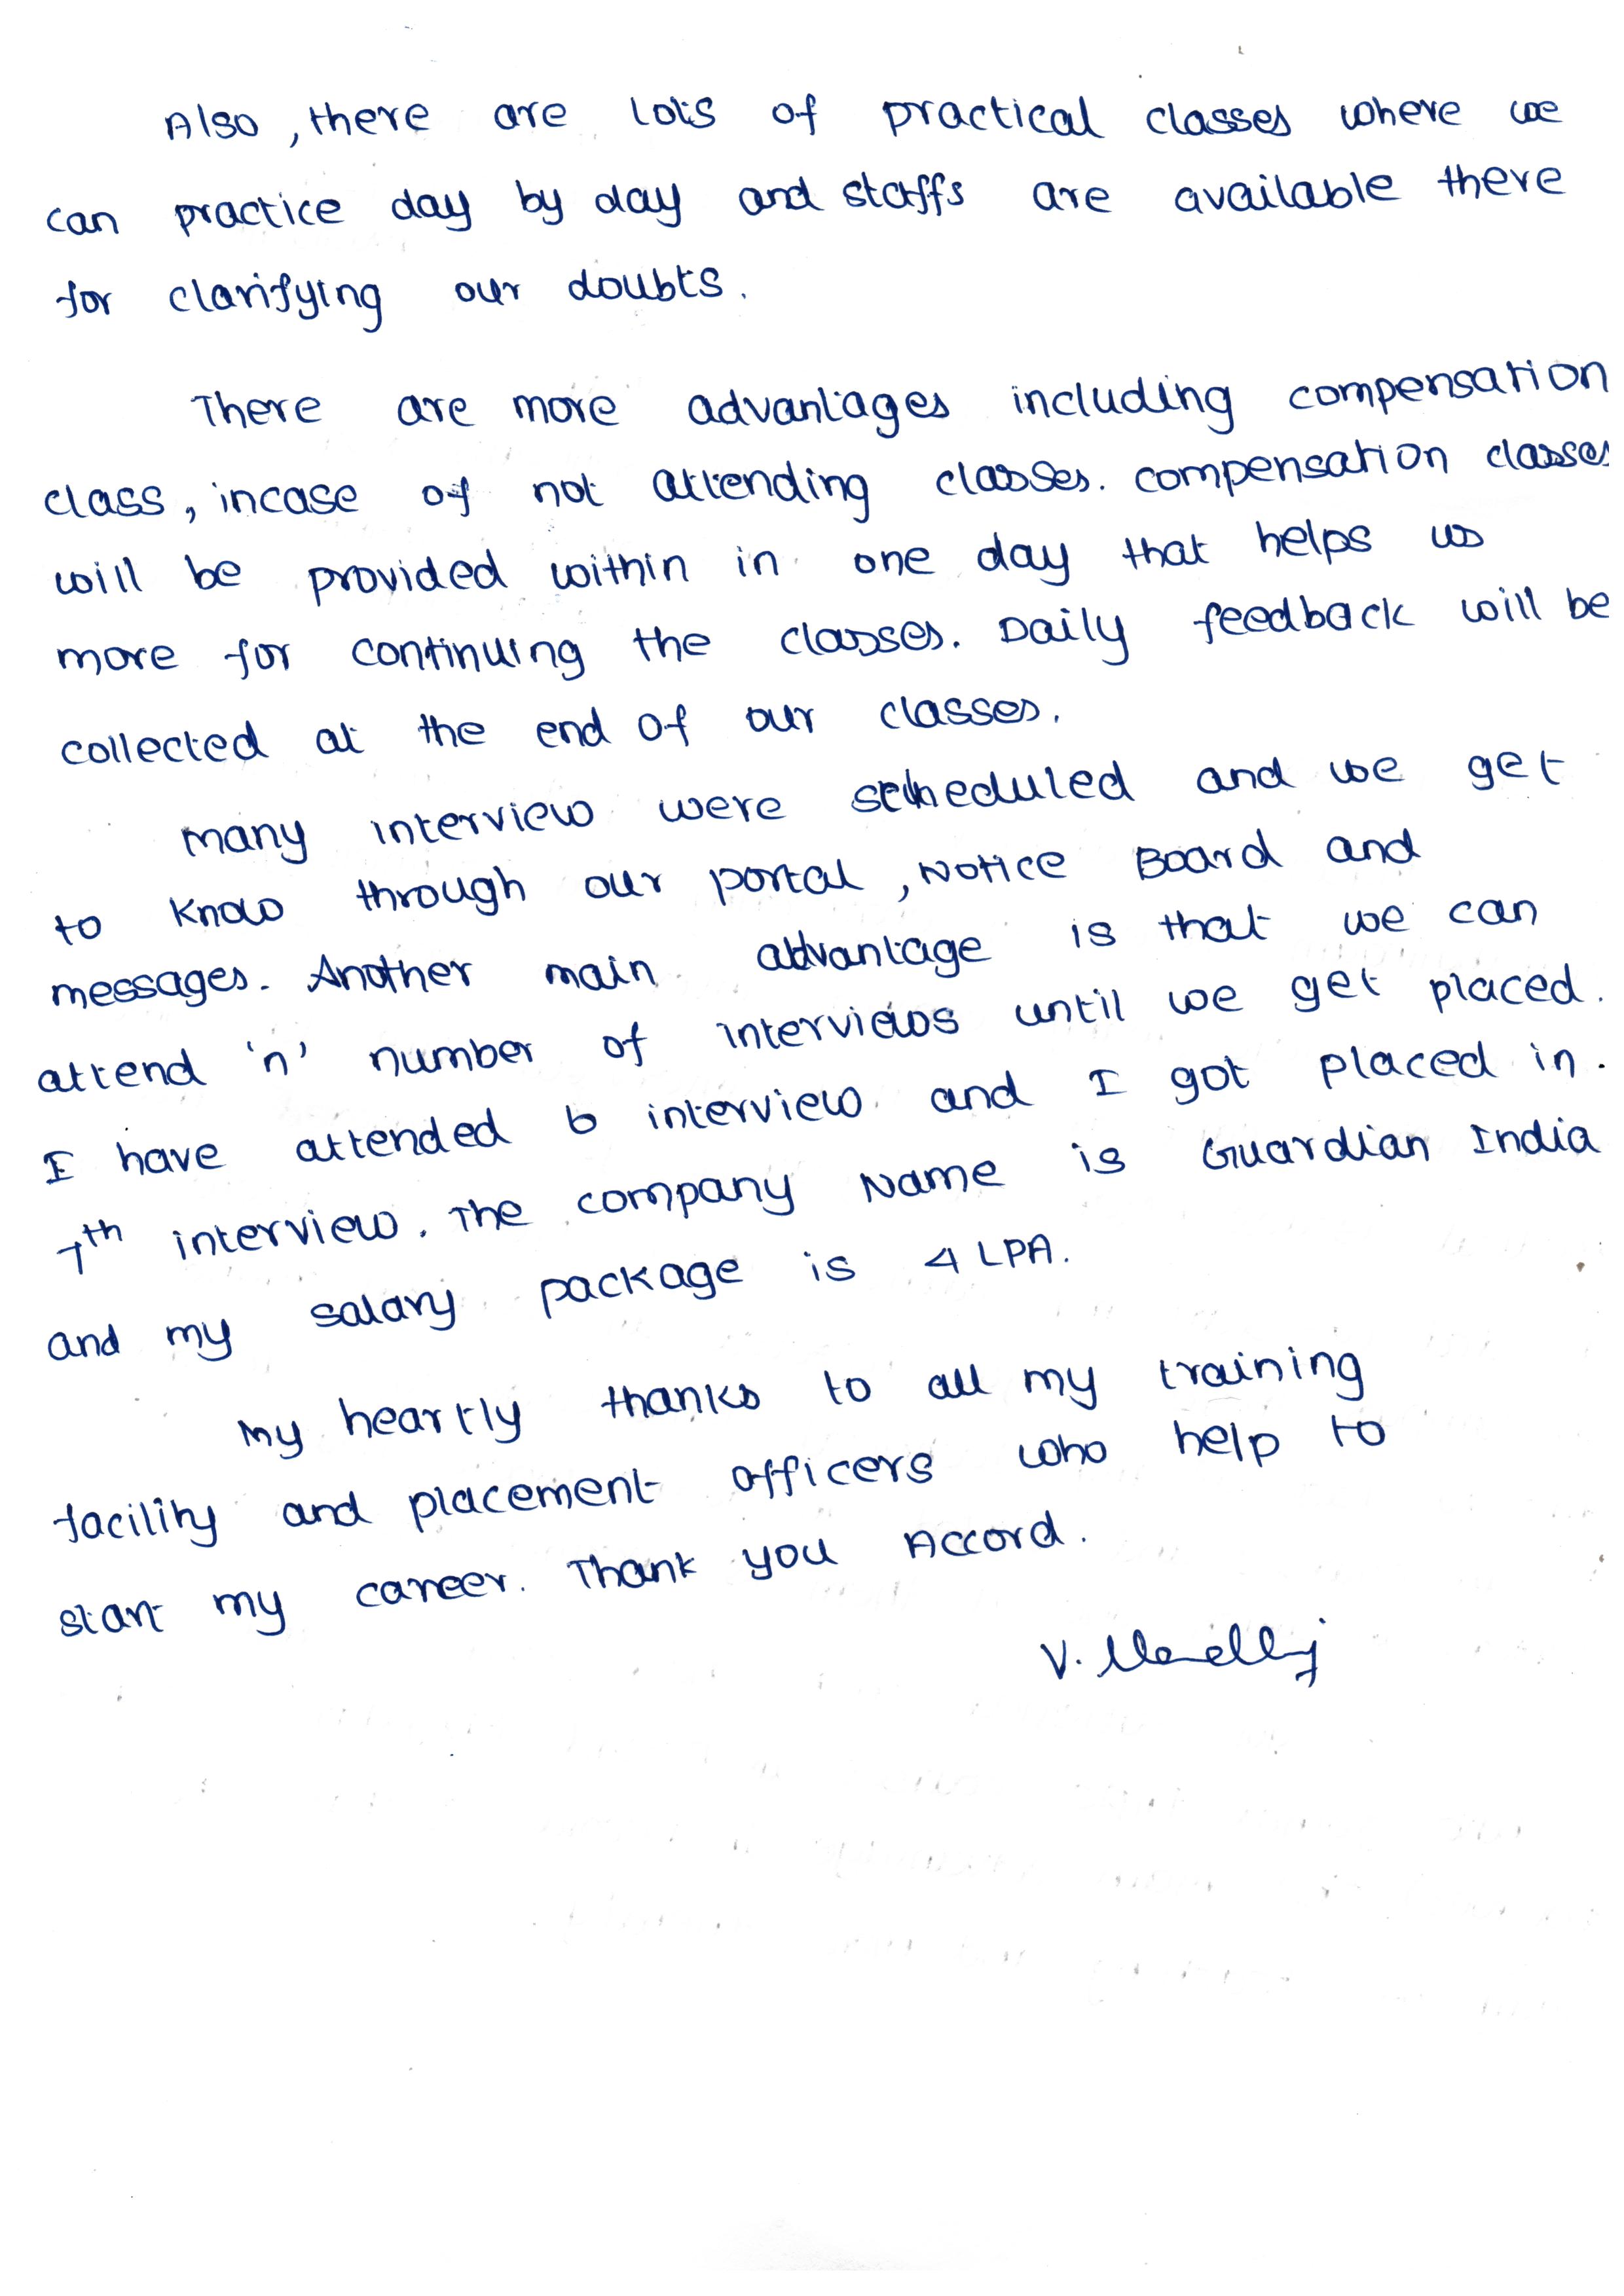 Also, there are lots of practical classes where we
can practice day by day and staffs are available there
for clarifying our doubts.
There are more advantages including compensation
class, incase of not attending classes. compensation classes
will be provided within in one day that helps us
more for continuing the classes. Daily feedback will be
collected at the end of our classes.
Many interview were scheduled and we get
to know through our portal, Notice Board and
messages. Another main advantage is that we can
attend 'n' number of interviews until we get placed.
I have attended 6 interview and I got placed in
7th interview. The company Name is Guardian India
and my salary package is 4 LPA.
My heartly thanks to all my training
facility and placement officers who help to
start my career. Thank you Accord.
V.